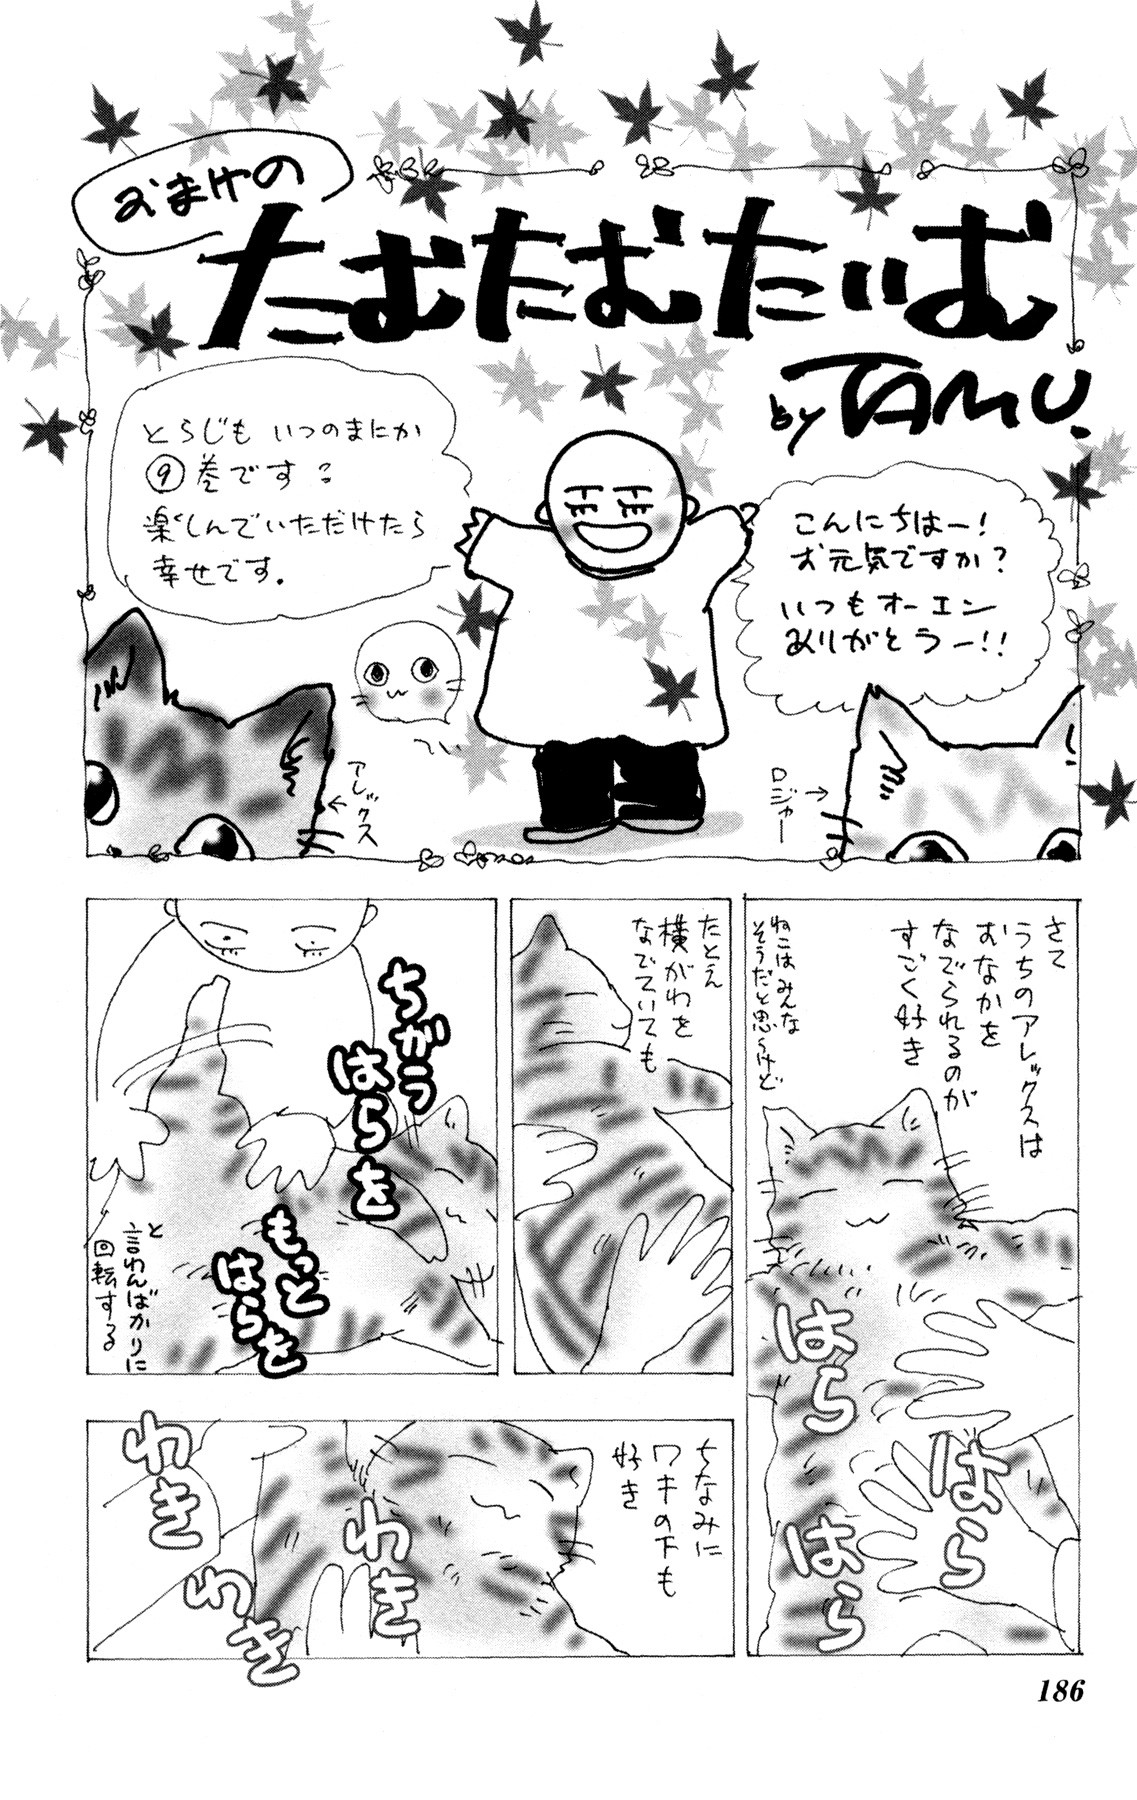 おまけの
たむたむたいむ
by TAMU.
こんにちはー!
お元気ですか?
いつもオーエン
ありがとうー!!
とらじも いつのまにか
⑨巻です。
楽しんでいただけたら
幸せです.
てい
アレックス
ロジャー
さて
うちのアレックスは
おなかを
なでられるのが
すごく好き
ねこはみんな
そうだと思うけど
はら
はら
はら
はら
たとえ
横がわを
なでていても
ちがう
はらを
もっと
はらを
と
言わんばかりに
回転する
ちなみに
ワキの下も
好き
わき
わき
わき
わき
186